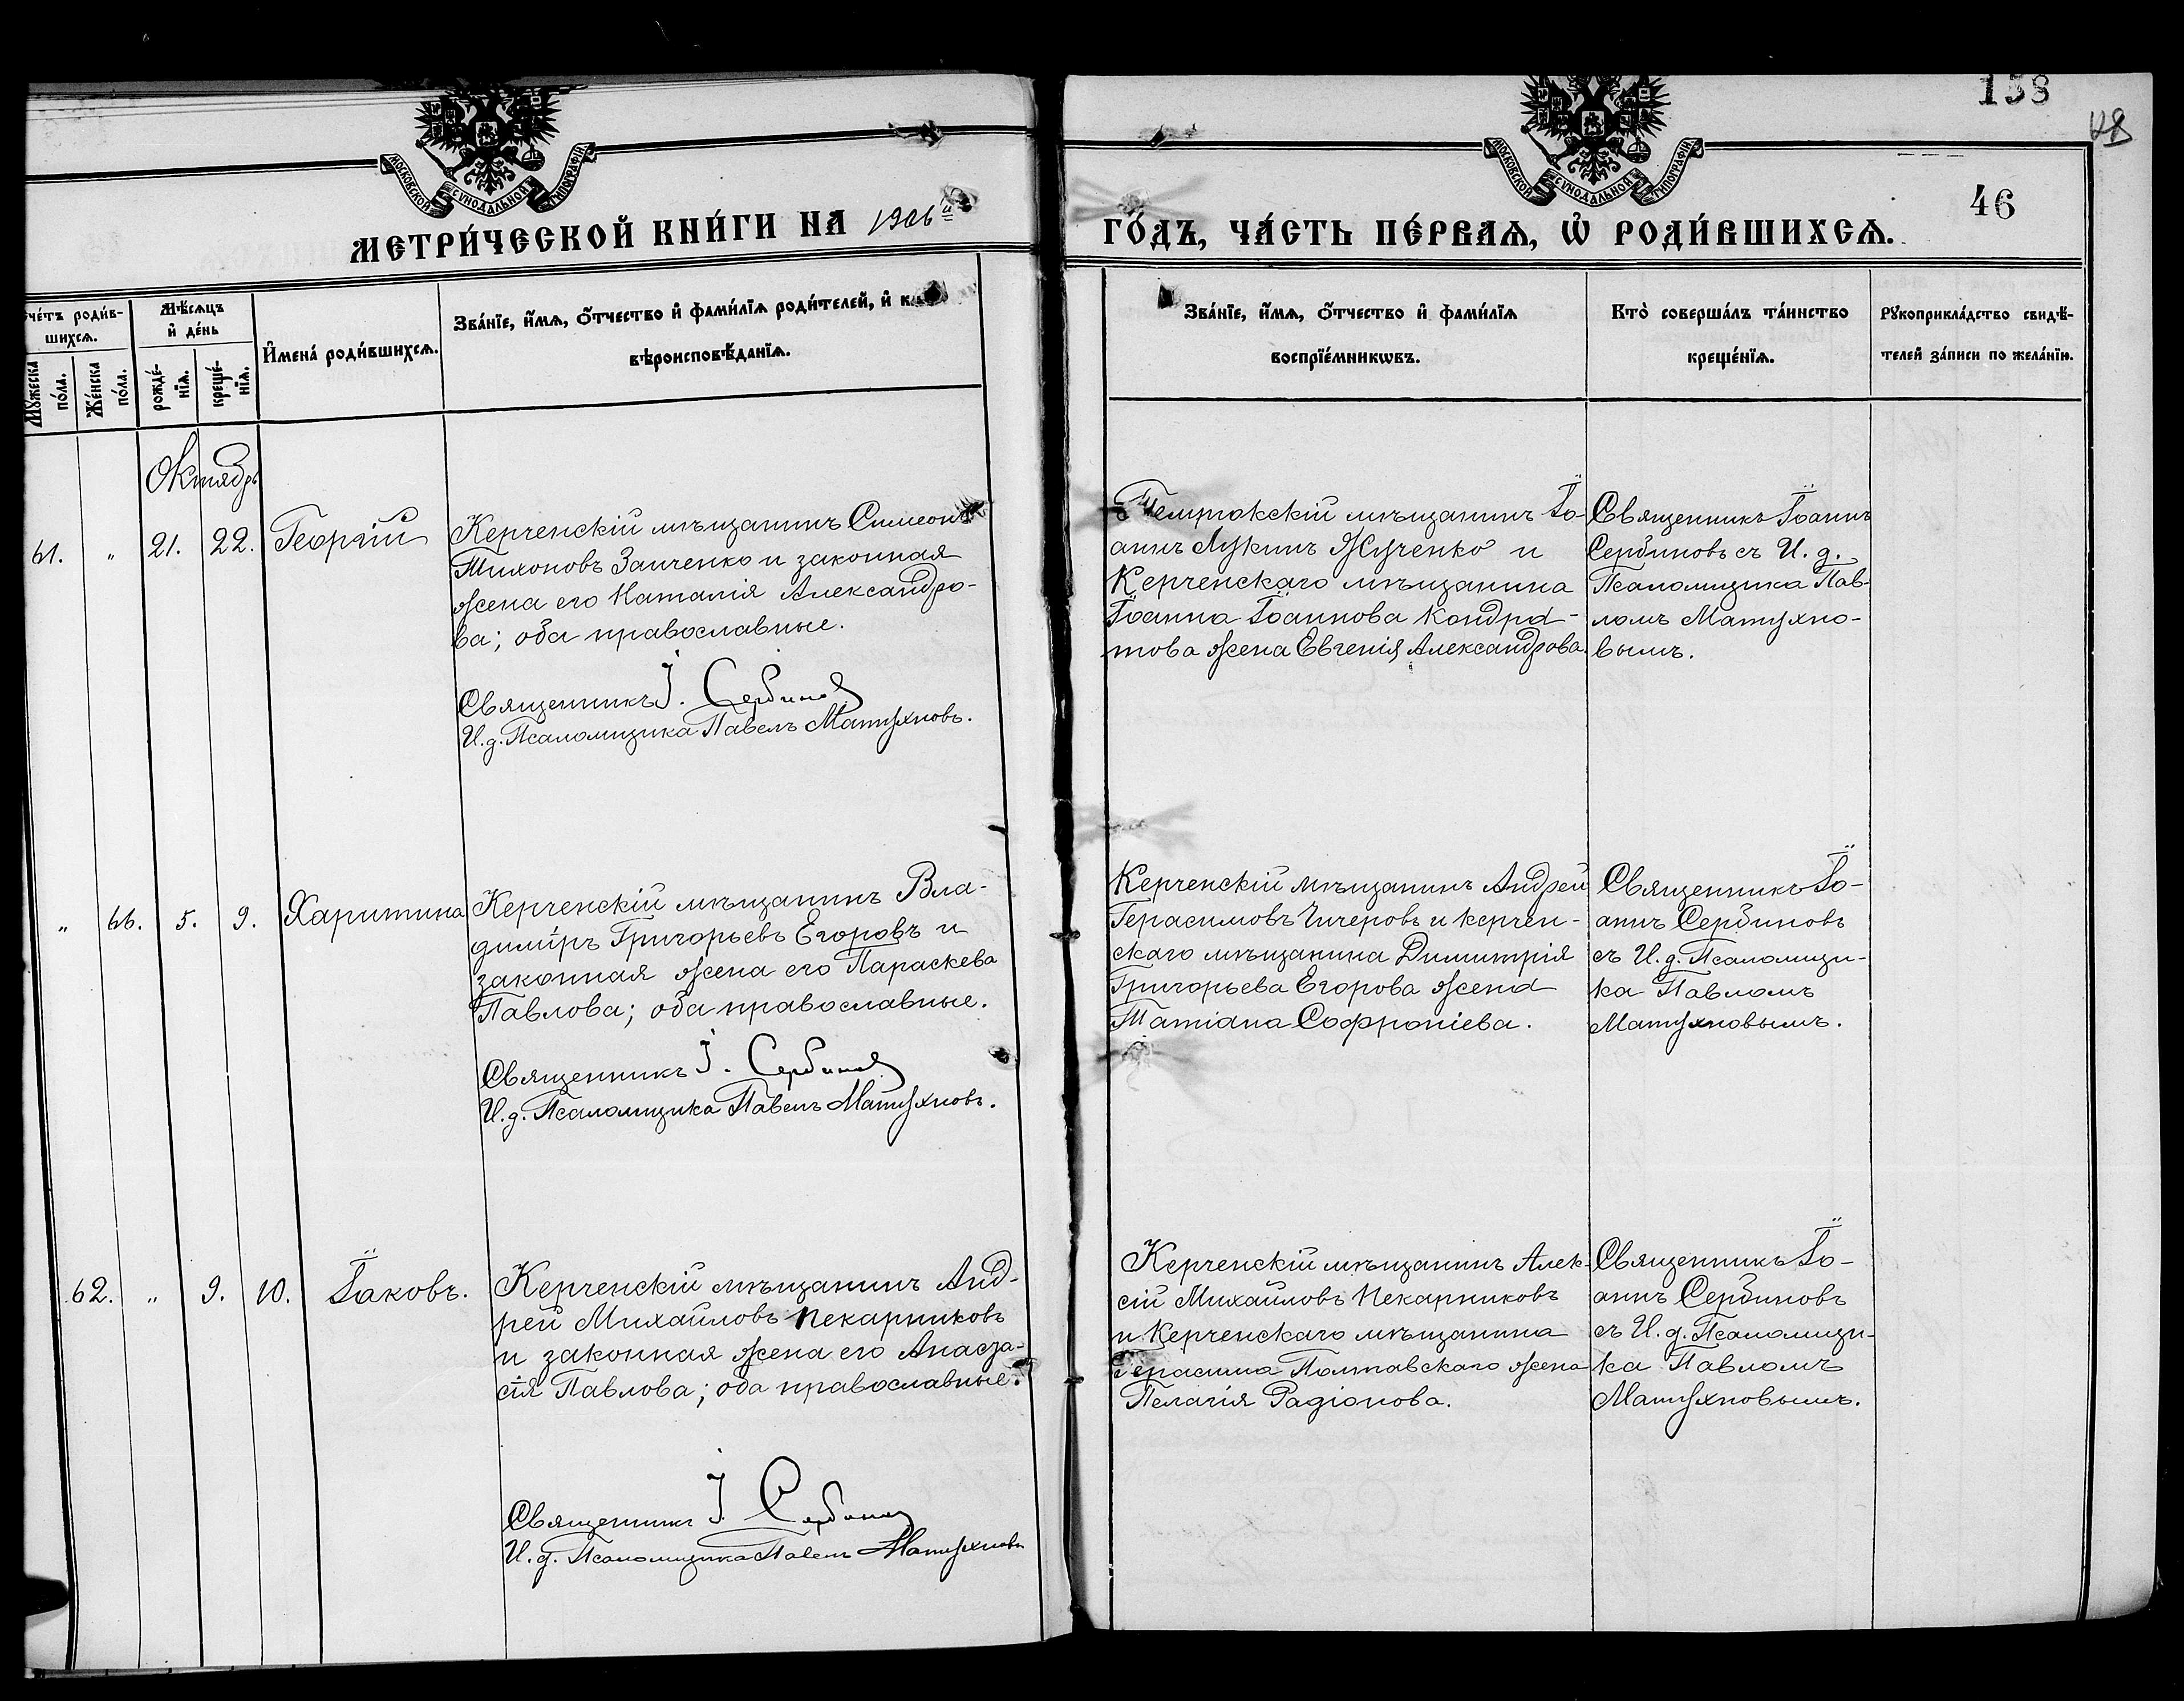 138
48
46
МОСКОВСКОЙ СѴНОДАЛЬНОЙ ТИПОГРАФІИ
МОСКОВСКОЙ СѴНОДАЛЬНОЙ ТИПОГРАФІИ
МЕТРИ́ЧЕСКОЙ КНИ́ГИ НА 1906й
ГО́ДЪ, ЧА́СТЬ ПЕ́РВАѦ, Ѡ҆ РОДИ́ВШИХСѦ.
чє́тъ роди́в-
шихсѧ.
Мꙋ́жеска по́ла.
Же́нска по́ла.
Мѣ́сѧцъ
и҆ де́нь
рожде́-
нїѧ.
креще́-
нїѧ.
И҆мена́ роди́вшихсѧ.
Зва́нїе, и҆́мѧ, ѻ҆́тчество и҆ фами́лїѧ роди́телей, и҆
вѣроисповѣ́данїѧ.
Зва́нїе, и҆́мѧ, ѻ҆́тчество и҆ фами́лїѧ
воспрїе́мникѡвъ.
Кто̀ соверша́лъ та́инство
креще́нїѧ.
Рꙋкоприкла́дство свидѣ́-
телей за́писи по жела́нїю.
Октябрь
61. " 21. 22. Георгій
Керченскій мѣщанинъ Симеонъ
Тихоновъ Заиченко и законная
жена его Наталія Александро-
ва; оба православные.
Священникъ І. Сербиновъ
И. д. Псаломщика Павелъ Матухновъ.
Темрюкскій мѣщанинъ Іо-
аннъ Лукинъ Жученко и
Керченскаго мѣщанина
Іоанна Іоаннова Кондра-
това жена Евгенія Александрова.
Священникъ Іоаннъ
Сербиновъ съ И. д.
Псаломщика Пав-
ломъ Матухно-
вымъ.
" 66. 5. 9. Харитина
Керченскій мѣщанинъ Вла-
димиръ Григорьевъ Егоровъ и
законная жена его Параскева
Павлова; оба православные.
Священникъ І. Сербиновъ
И. д. Псаломщика Павелъ Матухновъ.
Керченскій мѣщанинъ Андрей
Герасимовъ Чичеровъ и керчен-
скаго мѣщанина Димитрія
Григорьева Егорова жена
Татіана Софроніева.
Священникъ Іо-
аннъ Сербиновъ
съ И. д. Псаломщи-
ка Павломъ
Матухновымъ.
62. " 9. 10. Іаковъ.
Керченскій мѣщанинъ Анд-
рей Михайловъ Пекарниковъ
и законная жена его Анаста-
сія Павлова; оба православные.
Священникъ І. Сербиновъ
И. д. Псаломщика Павелъ Матухновъ
Керченскій мѣщанинъ Алек-
сій Михайловъ Пекарниковъ
и Керченскаго мѣщанина
Герасима Полтавскаго жена
Пелагія Радіонова.
Священникъ Іо-
аннъ Сербиновъ
съ И. д. Псаломщи-
ка Павломъ
Матухновымъ.